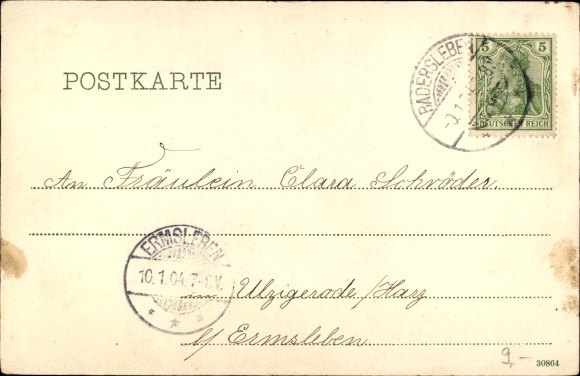 POSTKARTE
BADERSLEBEN
5 5
DEUTSCHES REICH
An Fräulein Clara Schröder.
ERMSLEBEN
10.1.04. 7-8.V.
Ulzigerode/Harz
b/ Ermsleben
9,-
30864